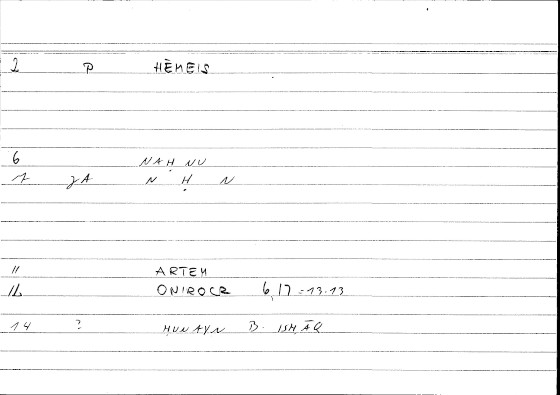 2 P HĒMEIS
6 NAḤNU
1 JA N Ḥ N
11 ARTEM
12 ONIROCR 6,17 = 13.13
14 ? ḤUNAYN B. ISḤĀQ